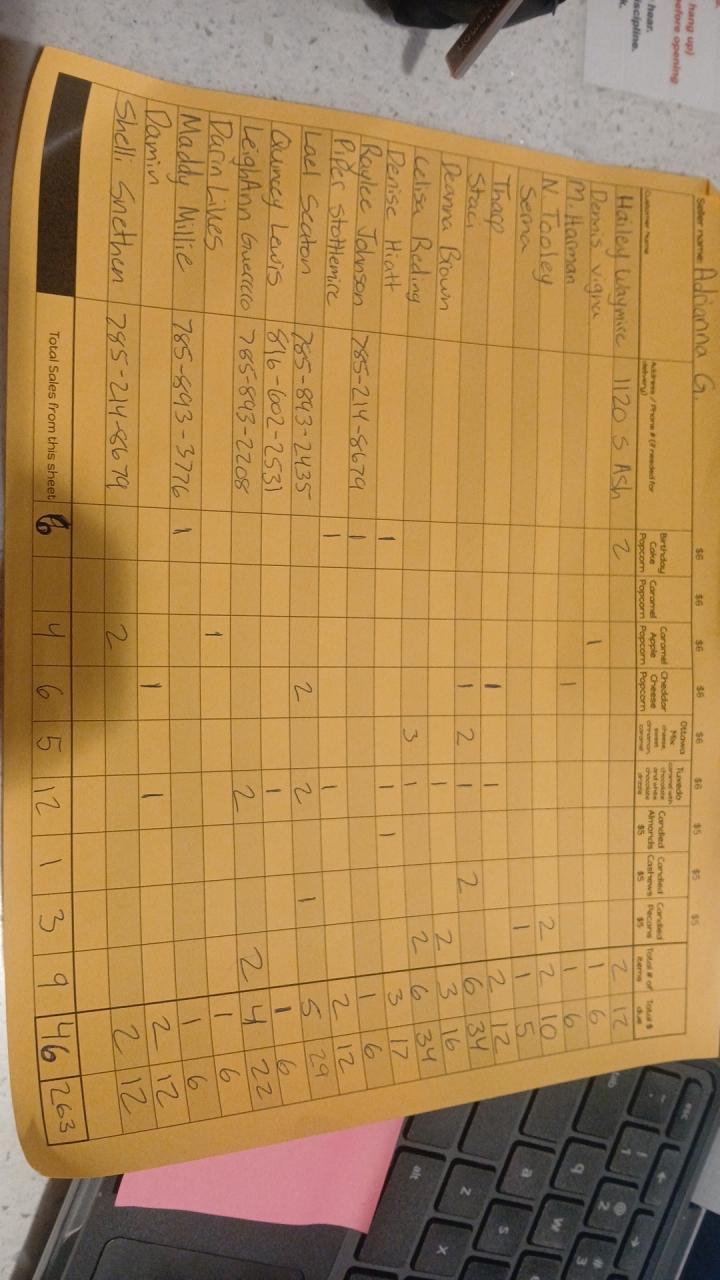 hang up)
before opening
hear.
iscipline.
k.
Seller name: Adrianna G.
$6 $6 $6 $6 $6 $6 $5 $5 $5
Customer name Address / Phone # (if needed for delivery) Birthday Cake Popcorn Caramel Popcorn Caramel Apple Popcorn Cheddar Cheese Popcorn Ottawa Mix cheese, sweet cinnamon, caramel Tuxedo caramel with chocolate and white chocolate drizzle Candied Almonds $5 Candied Cashews $5 Candied Pecans $5 Total # of items Total $ due
Hailey Waymire 1120 S Ash 2 2 12
Dennis Vigna 1 1 6
M. Harman 1 1 6
N. Tooley 2 2 10
Serna 1 1 5
Tharp 1 1 2 12
Staci 1 2 1 2 6 34
Deanna Brown 1 2 3 16
Celisa Reding 3 1 2 6 34
Denise Hiatt 1 1 1 3 17
Raylee Johnson 785-214-8679 1 1 6
Piper Stottlemire 1 1 2 12
Lael Seaton 785-893-2435 2 2 1 5 29
Quincy Lewis 816-602-2531 1 1 6
LeighAnn Guerrero 785-893-2208 2 2 4 22
Darin Likes 1 1 6
Maddy Millie 785-893-3776 1 1 6
Damin 1 1 2 12
Shelli Snethen 785-214-8679 2 2 12
Total Sales from this sheet: 6 4 6 5 12 1 3 9 46 263
esc
1
2
3
q
w
a
s
z
x
alt